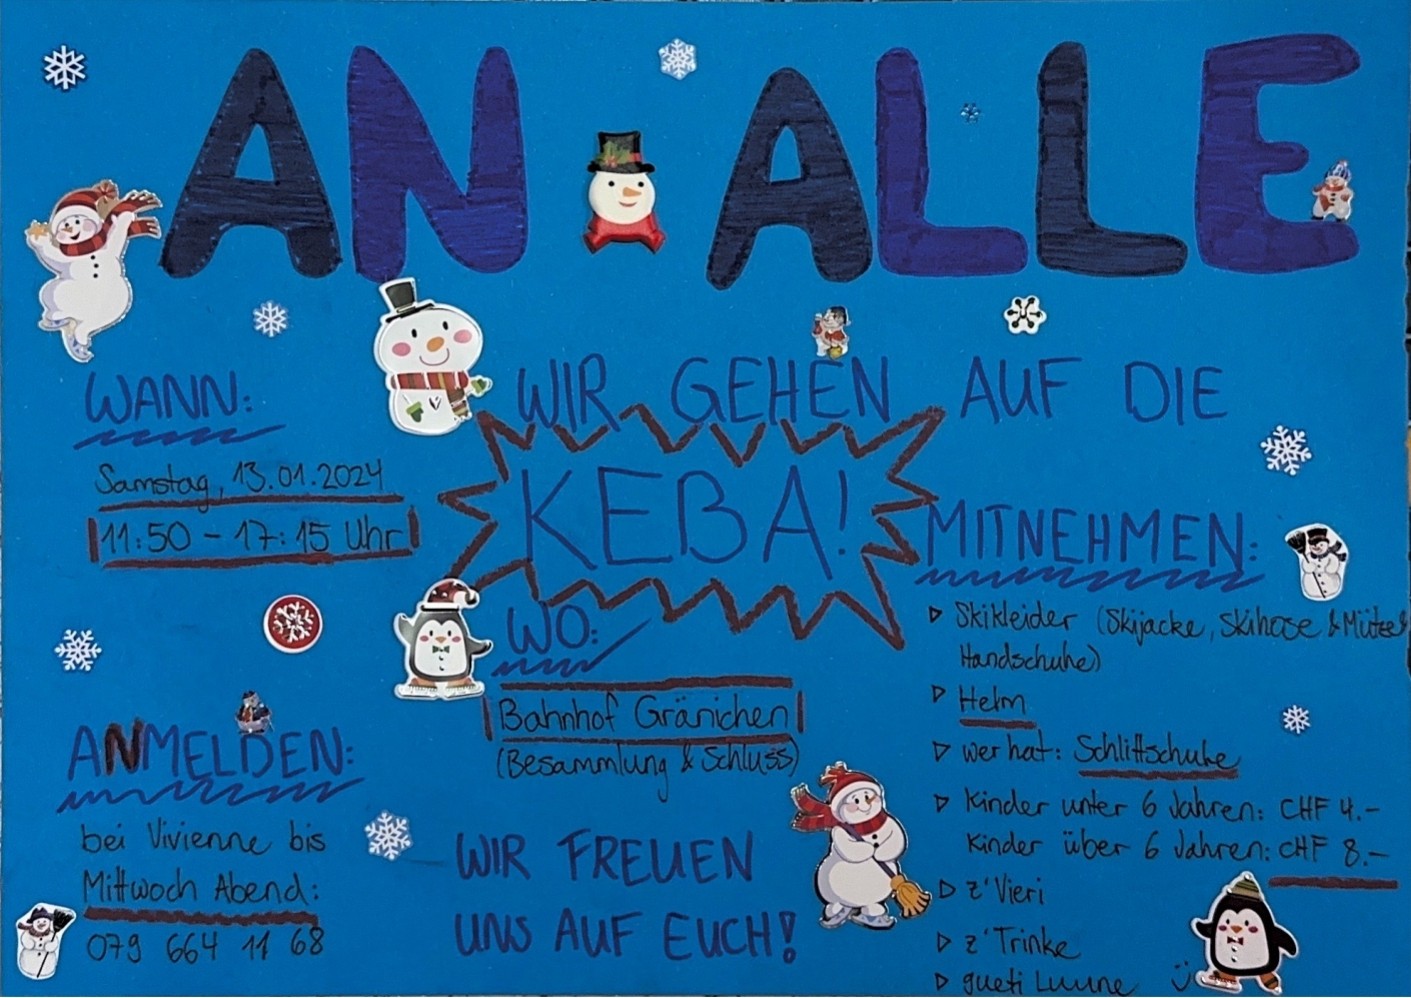 AN ALLE
WIR GEHEN AUF DIE
KEBA!
WANN:
Samstag, 13.01.2024
11:50 - 17:15 Uhr
WO:
Bahnhof Gränichen
(Besammlung & Schluss)
ANMELDEN:
bei Vivienne bis
Mittwoch Abend:
079 664 11 68
WIR FREUEN
UNS AUF EUCH!
MITNEHMEN:
▷ Skikleider (Skijacke, Skihose & Mütze &
Handschuhe)
▷ Helm
▷ wer hat: Schlittschuhe
▷ Kinder unter 6 Jahren: CHF 4.-
Kinder über 6 Jahren: CHF 8.-
▷ z'Vieri
▷ z'Trinke
▷ gueti Luune